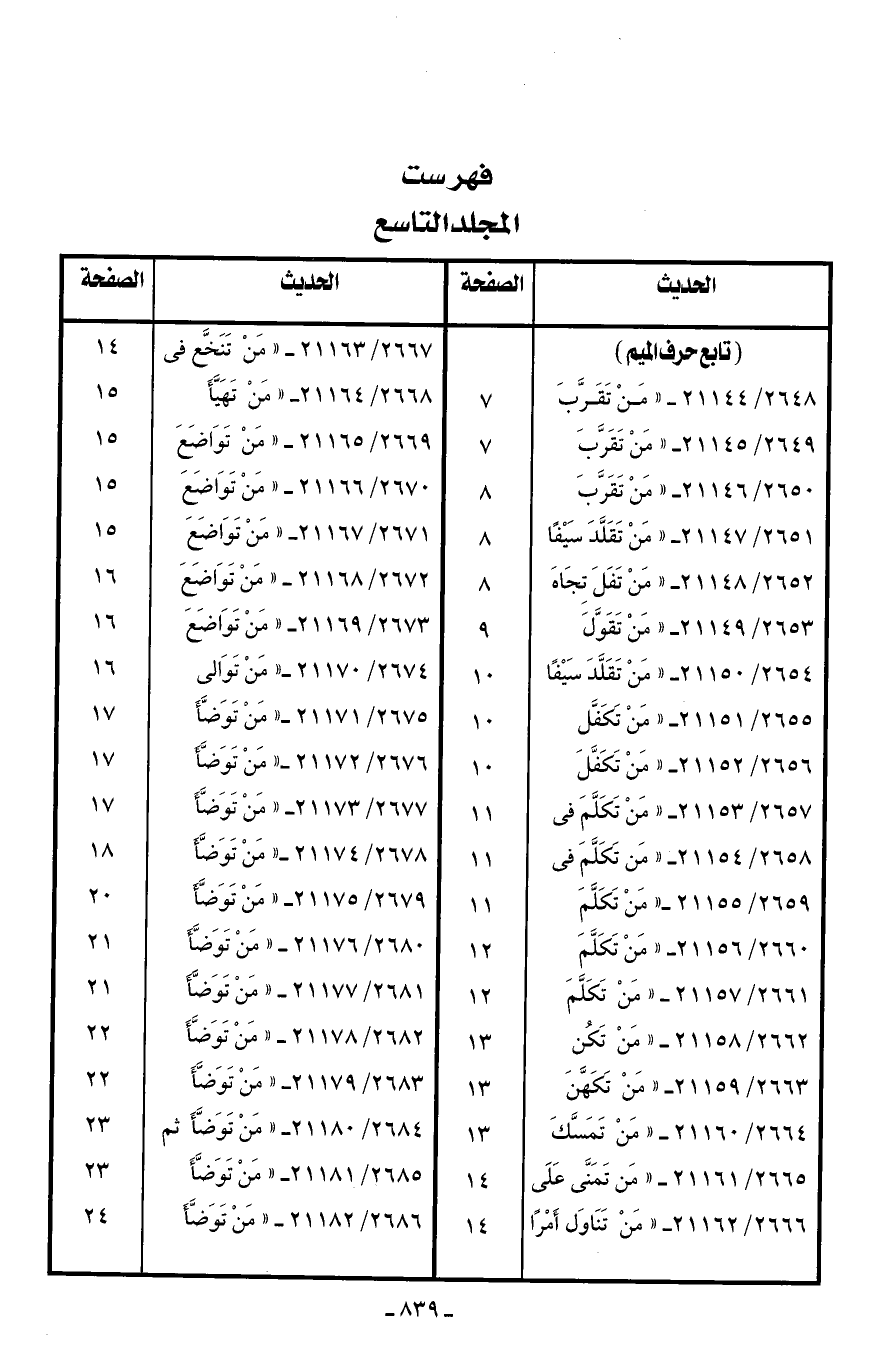 فهرست
المجلد التاسع
الحديث الصفحة
(تابع حرف الميم)
٢٦٤٨/ ٢١١٤٤ ـ « مَـنْ تَقَـرَّبَ ٧
٢٦٤٩/ ٢١١٤٥ـ « مَنْ تَقَرَّبَ ٧
٢٦٥٠/ ٢١١٤٦ ـ « مَنْ تَقَرَّبَ ٨
٢٦٥١/ ٢١١٤٧ـ « مَنْ تَقَلَّدَ سَيْفًا ٨
٢٦٥٢/ ٢١١٤٨ـ « مَنْ تَفَلَ تِجَاهَ ٨
٢٦٥٣/ ٢١١٤٩ـ « مَنْ تَقَوَّلَ ٩
٢٦٥٤/ ٢١١٥٠ـ « مَنْ تَقَلَّدَ سَيْفًا ١٠
٢٦٥٥/ ٢١١٥١ـ « مَنْ تَكَفَّل ١٠
٢٦٥٦/ ٢١١٥٢ـ « مَنْ تَكَفَّلَ ١٠
٢٦٥٧/ ٢١١٥٣ـ « مَنْ تَكَلَّمَ فى ١١
٢٦٥٨/ ٢١١٥٤ـ « مَن تَكَلَّمَ فى ١١
٢٦٥٩/ ٢١١٥٥ ـ« مَنْ تَكَلَّمَ ١١
٢٦٦٠/ ٢١١٥٦ـ « مَنْ تَكَلَّمَ ١٢
٢٦٦١/ ٢١١٥٧ ـ « مَنْ تَكَلَّمَ ١٢
٢٦٦٢/ ٢١١٥٨ ـ « مَنْ تَكُن ١٣
٢٦٦٣/ ٢١١٥٩ ـ « مَنْ تَكَهَّنَ ١٣
٢٦٦٤/ ٢١١٦٠ ـ « مَنْ تَمَسَّكَ ١٣
٢٦٦٥/ ٢١١٦١ ـ « مَن تَمَنَّى عَلَى ١٤
٢٦٦٦/ ٢١١٦٢ـ « مَنْ تَنَاوَل أَمْرًا ١٤
الحديث الصفحة
٢٦٦٧/ ٢١١٦٣ ـ « مَنْ تَنَخَّع فى ١٤
٢٦٦٨/ ٢١١٦٤ـ « مَنْ تَهَيَّأَ ١٥
٢٦٦٩/ ٢١١٦٥ ـ « مَنْ تَوَاضَعَ ١٥
٢٦٧٠/ ٢١١٦٦ ـ « مَنْ تَوَاضَعَ ١٥
٢٦٧١/ ٢١١٦٧ـ « مَنْ تَوَاضَعَ ١٥
٢٦٧٢/ ٢١١٦٨ ـ « مَنْ تَوَاضَعَ ١٦
٢٦٧٣/ ٢١١٦٩ـ « مَنْ تَوَاضَعَ ١٦
٢٦٧٤/ ٢١١٧٠ ـ« مَنْ تَوَالى ١٦
٢٦٧٥/ ٢١١٧١ ـ« مَنْ تَوَضَّأَ ١٧
٢٦٧٦/ ٢١١٧٢ ـ« مَنْ تَوَضَّأَ ١٧
٢٦٧٧/ ٢١١٧٣ـ « مَنْ تَوَضَّأَ ١٧
٢٦٧٨/ ٢١١٧٤ ـ« مَنْ تَوَضَّأَ ١٨
٢٦٧٩/ ٢١١٧٥ـ « مَنْ تَوَضَّأَ ٢٠
٢٦٨٠/ ٢١١٧٦ ـ « مَنْ تَوَضَّأَ ٢١
٢٦٨١/ ٢١١٧٧ ـ « مَنْ تَوَضَّأَ ٢١
٢٦٨٢/ ٢١١٧٨ ـ « مَنْ تَوَضَّأَ ٢٢
٢٦٨٣/ ٢١١٧٩ـ « مَنْ تَوَضَّأَ ٢٢
٢٦٨٤/ ٢١١٨٠ـ « مَنْ تَوَضَّأَ ثم ٢٣
٢٦٨٥/ ٢١١٨١ـ « مَنْ تَوَضَّأَ ٢٣
٢٦٨٦/ ٢١١٨٢ ـ « مَنْ تَوَضَّأَ ٢٤
ـ ٨٣٩ ـ